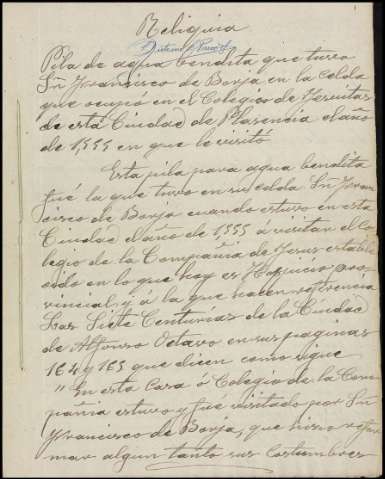 Reliquia
Pila de agua bendita que tuvo
Sn Francisco de Borja en la Celda
que ocupó en el Colegio de Jesuitas
de esta Ciudad de Plasencia el año
de 1,555 en que le visitó
Esta pila para agua bendita
fué la que tuvo en su celda Sn Fran
cisco de Borja cuando estuvo en esta
Ciudad el año de 1555 a visitar el Co
legio de la Compañia de Jesus estable
cido en lo que hoy es Hospicio pro
vincial, y á la que hacen referencia
Las Siete Centurias de la Ciudad
de Alfonso Octavo en sus paginas
164 y 165 que dicen como sigue
"En esta Casa ó Colegio de la Com
pañia estuvo y fué visitado por Sn
Francisco de Borja, que hizo refor
mar algun tanto sus costumbres